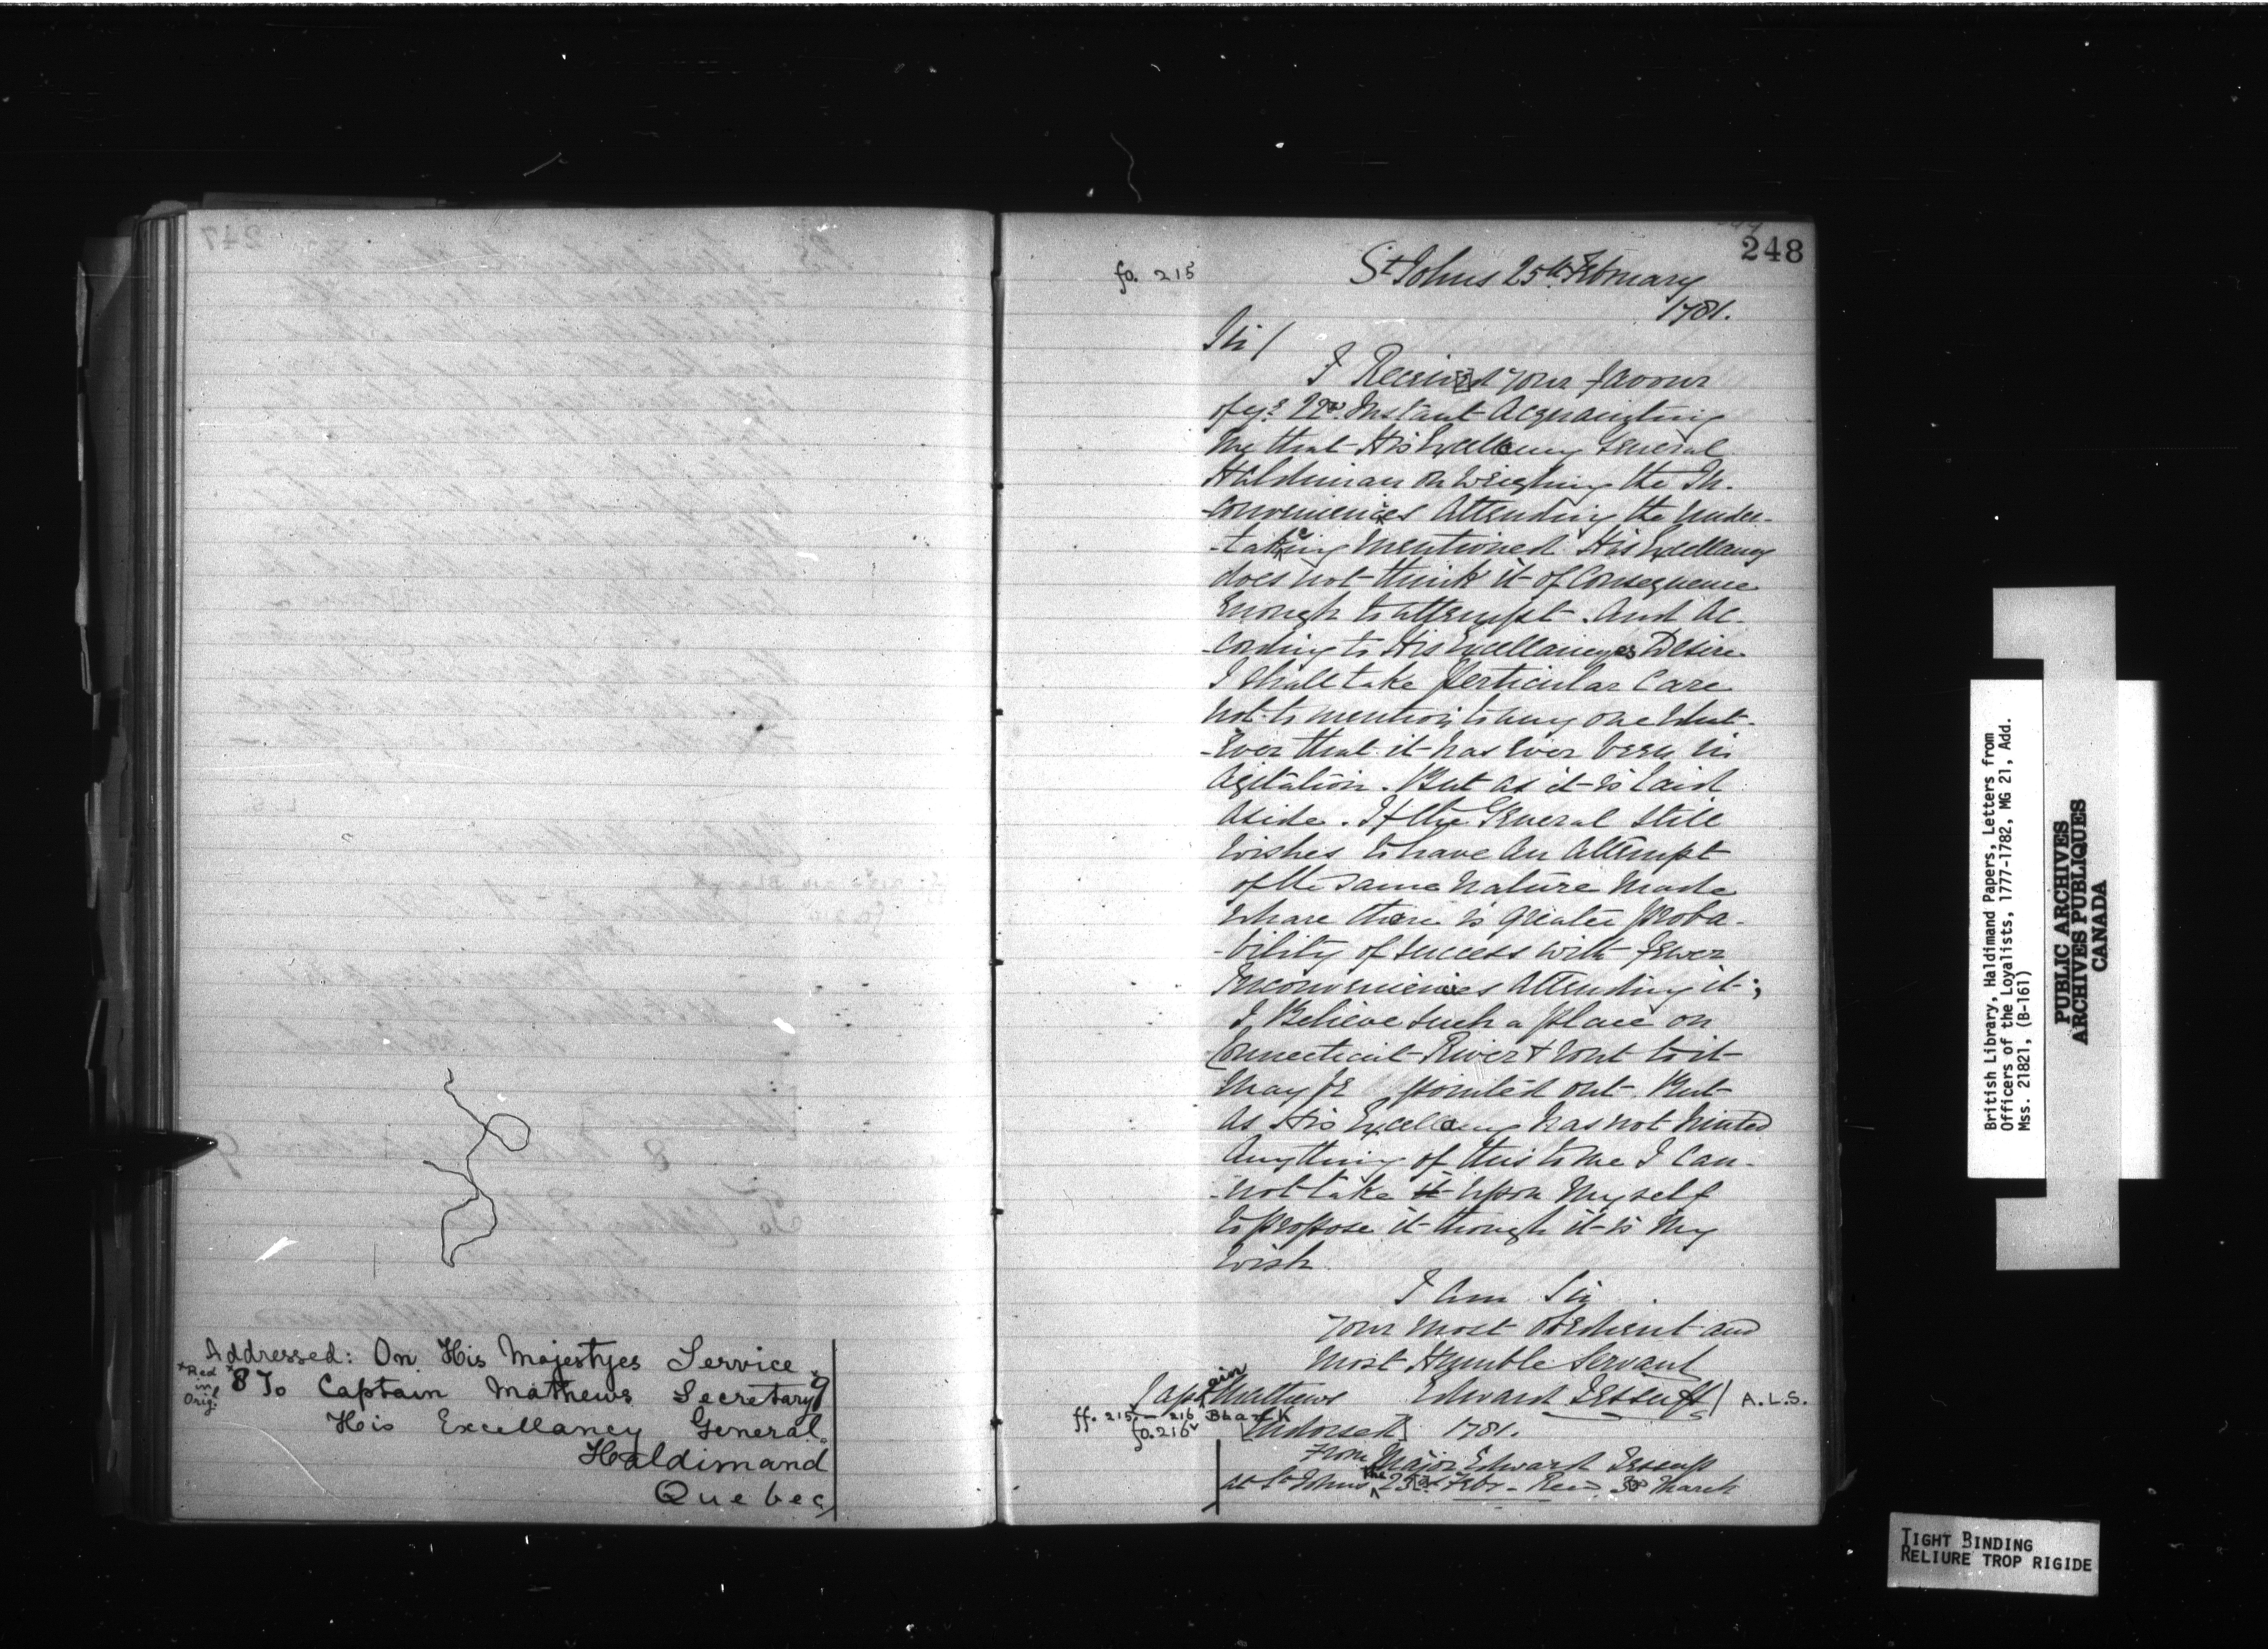 Addressed: On His Majestyes Service
*Red in Orig.
*8 To Captain Mathews Secretary
His Excellancy General
Haldimand
Quebec
248
fo. 215
St Johns 25th February
1781.
Sir/
I Received your favour
of ye 22d. Instant Acquainting
me that His Excellency General
Haldiman on Weighing the In-
-conveniences Attending the under-
-taking mentioned His Excellancy
does not think it of Consequence
Enough to attempt. And Ac-
-cording to His Excellancyes Desire
I shall take Perticular Care
not to mention to any one What-
-Ever that it has Ever been in
Agitation. But as it is Laid
Aside. If the General Still
wishes to have An Attempt
of the same Nature Made
Whare there is greater Proba-
-bility of success with fewer
Inconveniences Attending it;
I Believe such a place on
Connecticut River & Rout to it
May be pointed out. But
As His Excellancy has not hinted
Anything of this to me I Can-
-not take it Upon Myself
to propose it though it is My
Wish
I Am Sir
Your most Obedient and
Most Humble Servant
Captain Mathews Edward Jessup A.L.S.
ff. 215v - 216 Blank
fo. 216v [Endorsed] 1781.
From Major Edward Jessup
at St Johns the 25th Febr - Recd 3d March
British Library, Haldimand Papers, Letters from
Officers of the Loyalists, 1777-1782, MG 21, Add.
Mss. 21821, (B-161)
PUBLIC ARCHIVES
ARCHIVES PUBLIQUES
CANADA
TIGHT BINDING
RELIURE TROP RIGIDE